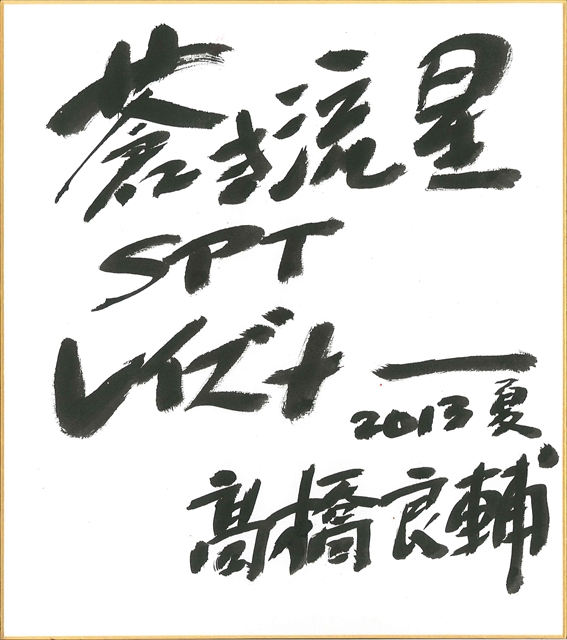 蒼き流星
SPT
レイズナー
2013 夏
高橋良輔